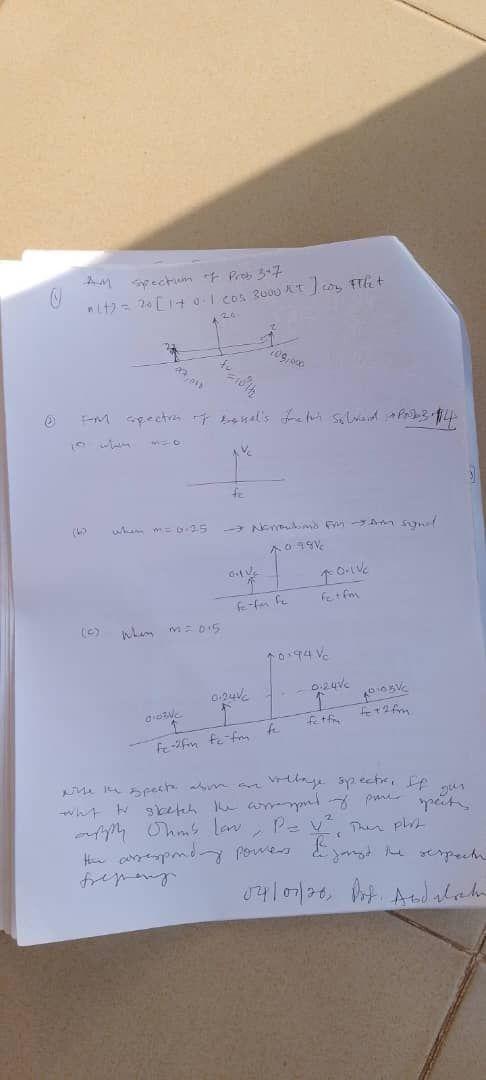 (1) AM Spectrum of Prob 3.7
n(t) = 20 [1 + 0.1 cos 3000 πt ] cos πfct
20
2
2
fc
=10⁵Hz
109,000
(2) FM spectra of Bessel's function Solved Prob 3.14
(a) when m=0
Vc
fc
(b) when m=0.25 → Narrowband FM → Am signal
0.98Vc
0.1Vc
0.1Vc
fc-fm fc fc+fm
(c) When m=0.5
0.94 Vc
0.24Vc
0.24Vc
0.03Vc
0.03Vc
fc-2fm fc-fm fc fc+fm fc+2fm
Note the spectra above are voltage spectra, If you
want to sketch the of power spectra
apply Ohm's law, P = V²/R, Then plot
the corresponding powers against the respective
frequency
Prof.